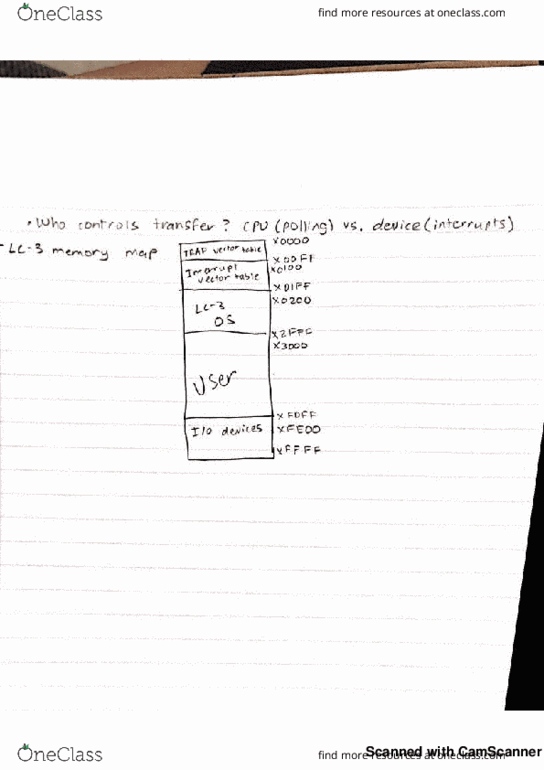 OneClass
find more resources at oneclass.com
• Who controls transfer? CPU (polling) vs. device (interrupts)
- LC-3 memory map
TRAP vector table
x0000
x00FF
Interrupt vector table
x0100
x01FF
LC-3 OS
x0200
x2FFF
User
x3000
xFDFF
I/O devices
xFE00
xFFFF
OneClass
find more resources at oneclass.com
Scanned with CamScanner